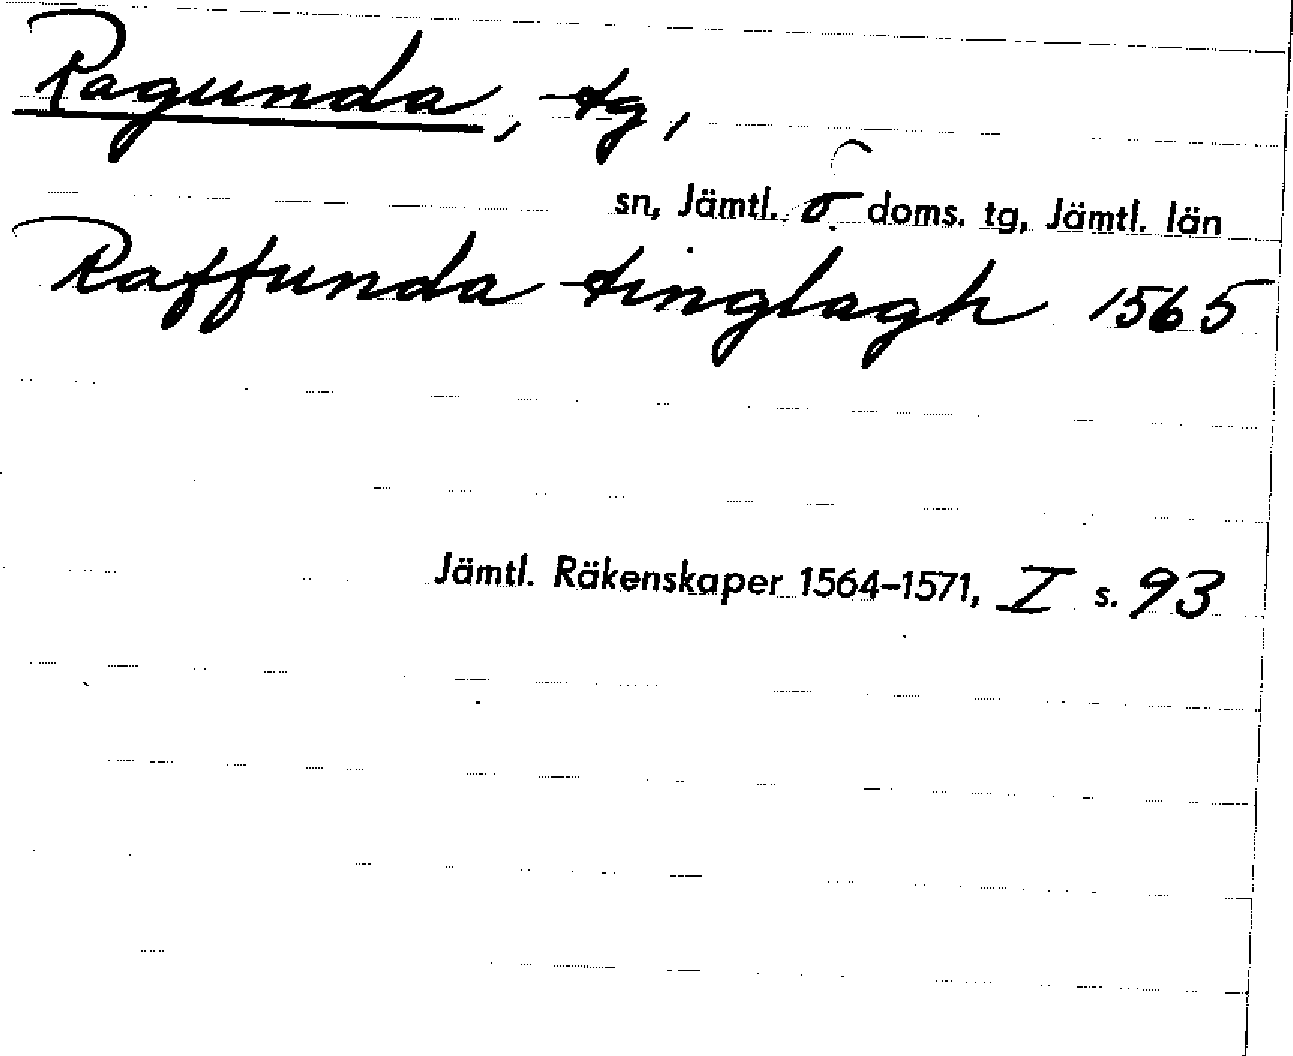 Ragunda, tg,
sn, Jämtl. ö. doms. tg, Jämtl. län
Raffunda tinglagh 1565
Jämtl. Räkenskaper 1564–1571, I s. 93